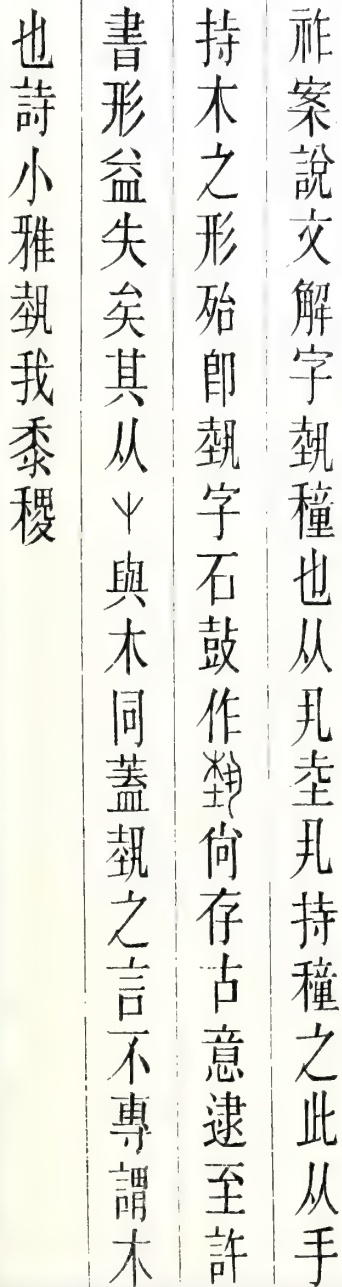 祚案說文解字埶穜也从丮坴丮持穜之此从手
持木之形殆即埶字石鼓作尙存古意逮至許
書形益失矣其从屮與木同蓋埶之言不專謂木
也詩小雅埶我黍稷